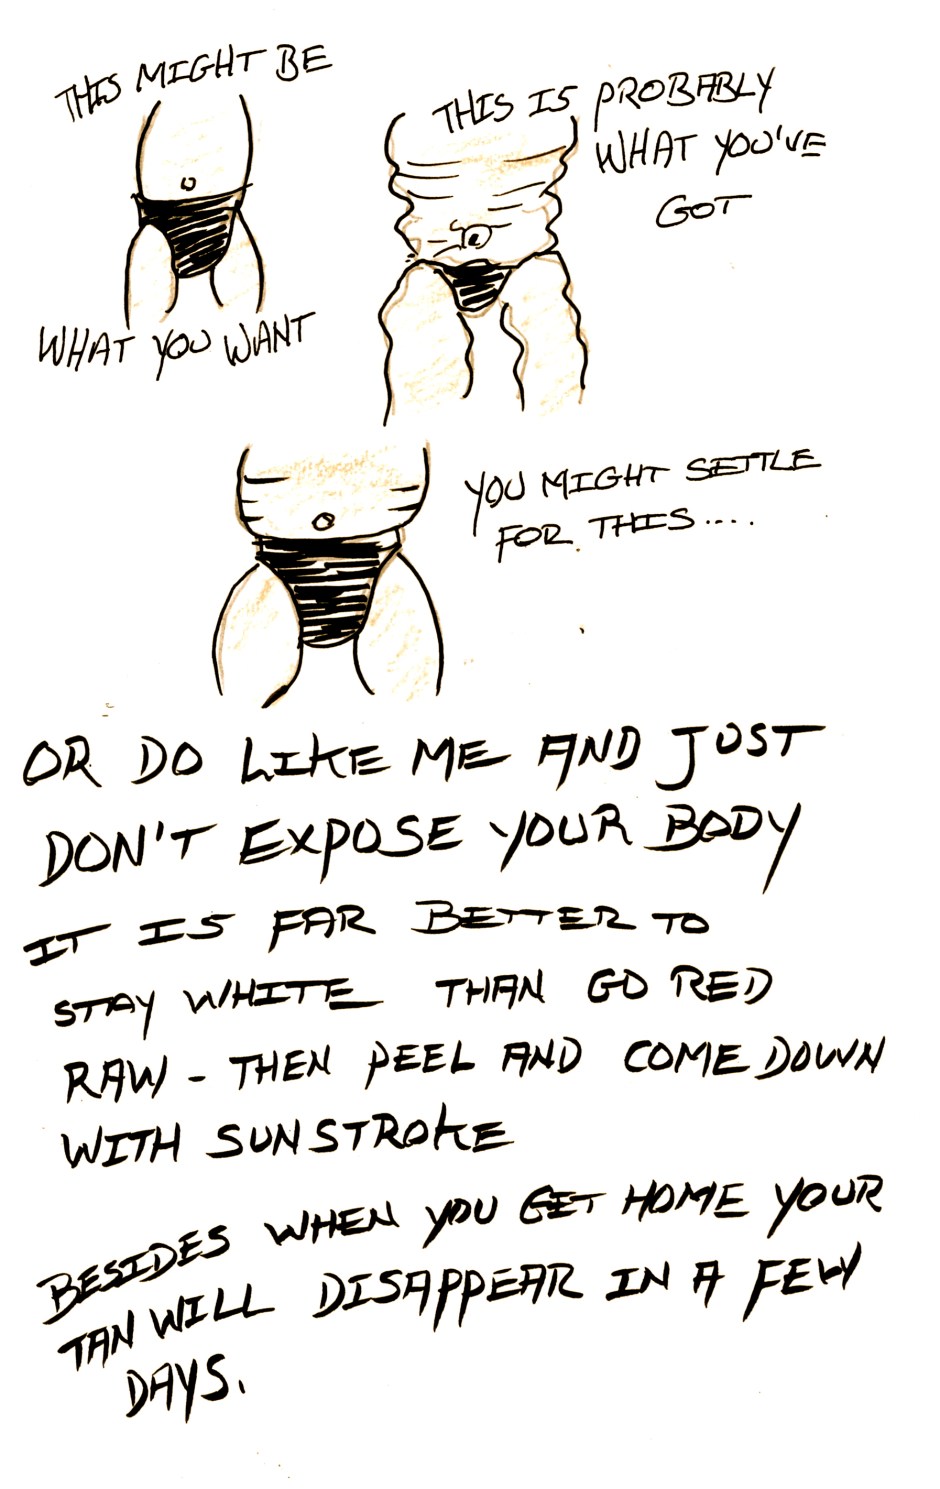 THIS MIGHT BE
WHAT YOU WANT
THIS IS PROBABLY
WHAT YOU'VE
GOT
YOU MIGHT SETTLE
FOR THIS....
OR DO LIKE ME AND JUST
DON'T EXPOSE YOUR BODY
IT IS FAR BETTER TO
STAY WHITE THAN GO RED
RAW - THEN PEEL AND COME DOWN
WITH SUNSTROKE
BESIDES WHEN YOU GET HOME YOUR
TAN WILL DISAPPEAR IN A FEW
DAYS.